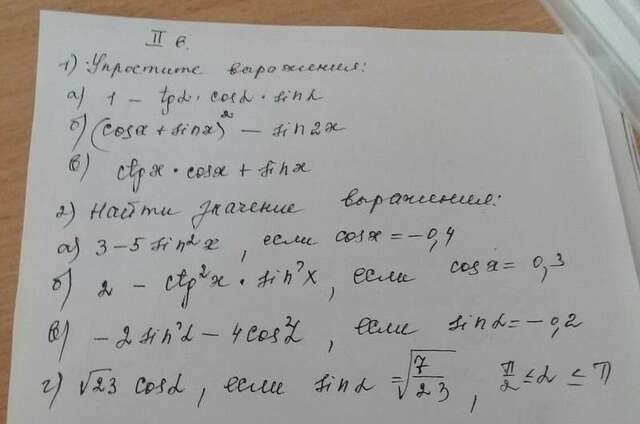 II в.
1) Упростите выражения:
а) 1 - tgα · cosα · sinα
б) (cosx + sinx)² - sin2x
в) ctgx · cosx + sinx
2) Найти значение выражения:
а) 3-5 sin²x, если cosx = -0,4
б) 2 - ctg²x · sin²x, если cosx = 0,3
в) -2 sin²α - 4cos²α, если sinα = -0,2
г) √23 cosα, если sinα = √7/23, π/2 ≤ α ≤ π